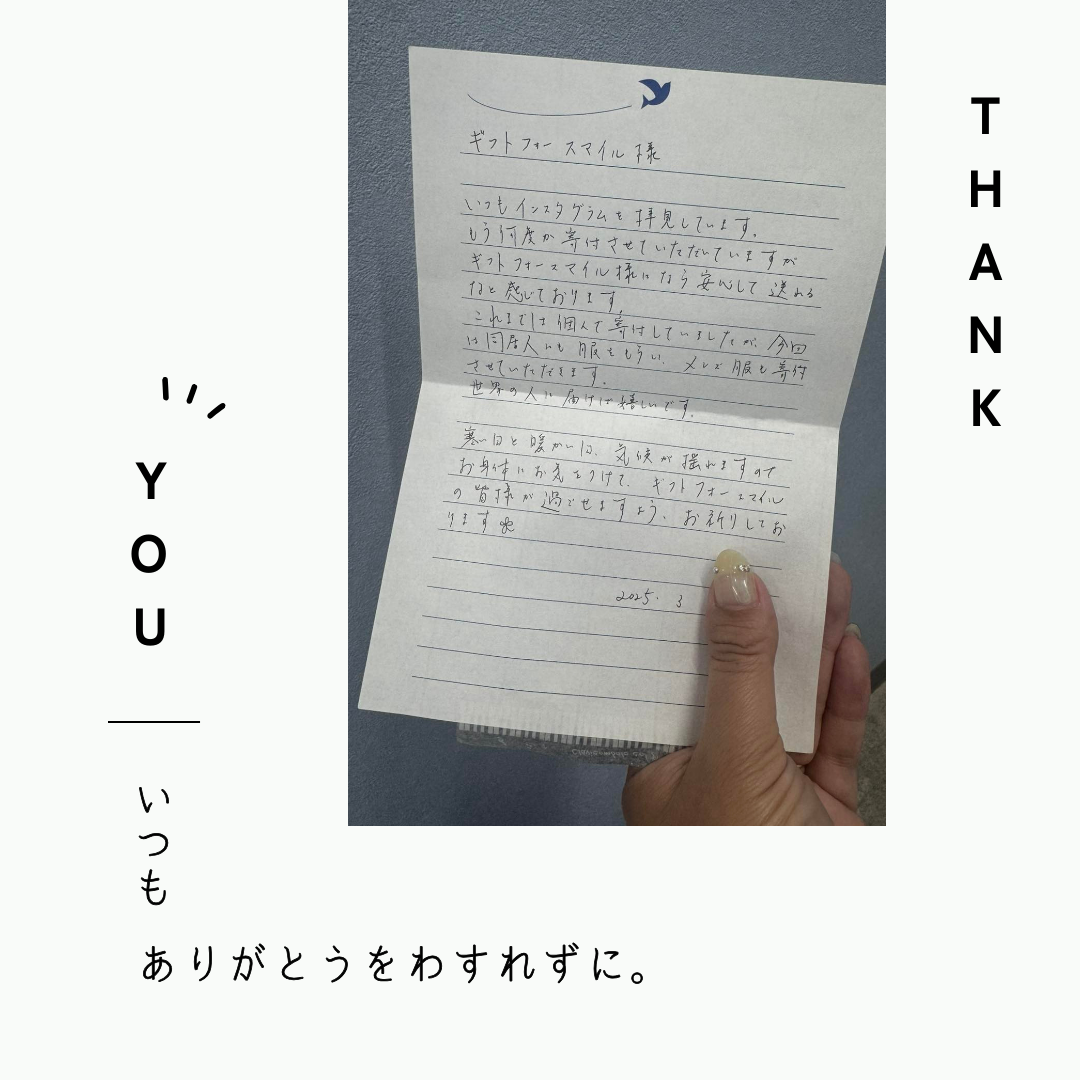 THANK
YOU
ギフトフォースマイル様
いつもインスタグラムを拝見しています。
もう何度か寄付させていただいていますが
ギフトフォースマイル様になら安心して送れる
なと感じております。
これまでは個人で寄付していましたが、今回
は同居人にも服をもらい、メンズ服も寄付
させていただきます。
世界の人に届けば嬉しいです。
寒い日と暖かい日、気候が揺れますので
お身体にお気をつけて、ギフトフォースマイル
の皆様が過ごせますよう、お祈りしてお
ります
2025. 3
いつも
ありがとうをわすれずに。